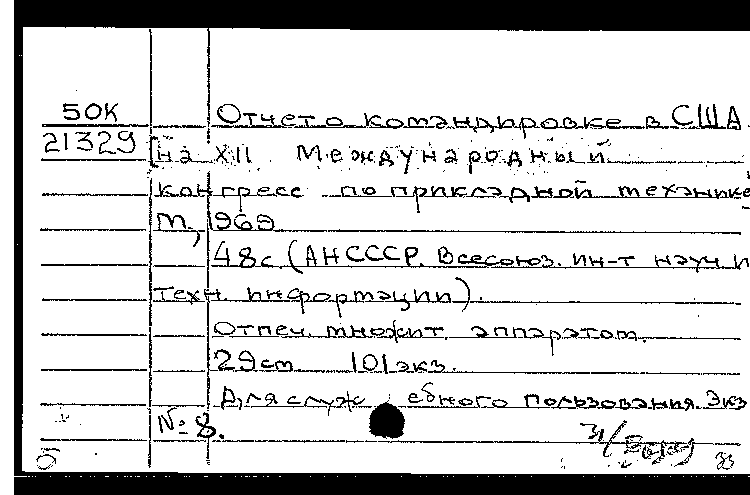 50К
Отчет о командировке в США
21329
[на XII Международный
конгресс по прикладной механике
М., 1969
48с (АН СССР. Всесоюз. ин-т науч и
техн. информации).
Отпеч. множит. аппаратом.
29см 101 экз.
Для служ ебного пользования. Экз
№ 8.